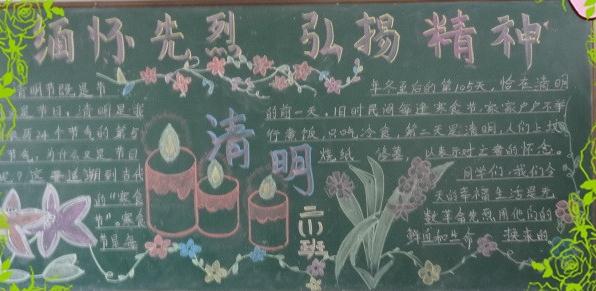 缅怀先烈 弘扬精神
清明节既是节
节日,清明是
24个节气的第5
节气,为什么又是节日
呢?这要追溯到古代
的"寒食
节"。寒食
节是每
年冬至后的第105天,恰在清明
的前一天,旧时民间每逢寒食节,家家户户不举
行煮饭,只吃冷食,第二天是清明,人们上坟
烧纸 以表示对亡者的怀念。
同学们,我们今
天的幸福生活是无
数革命先烈用他们的
鲜血和生命 换来的
清明
二(1)班